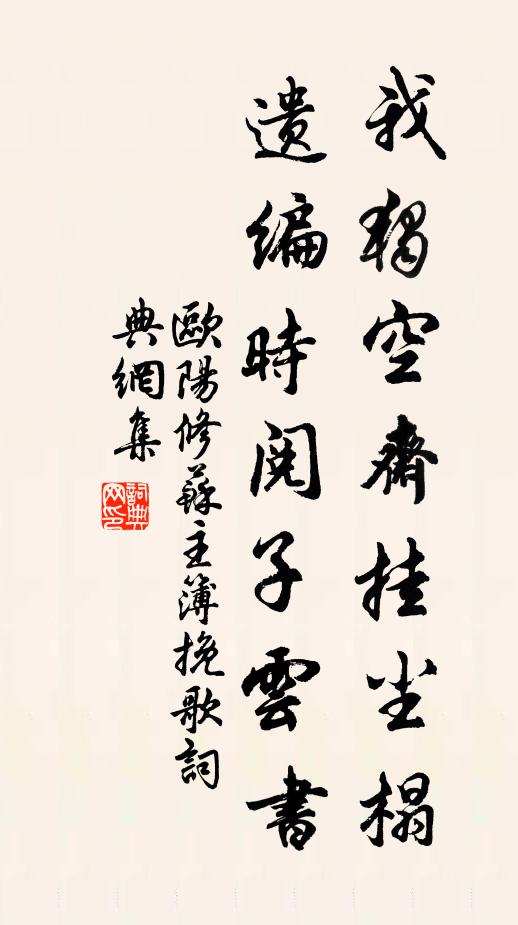 我獨空齋挂尘榻
遗编時阅子雲書
歐陽修蘇主簿挽歌詞
典網集
詞典
网印